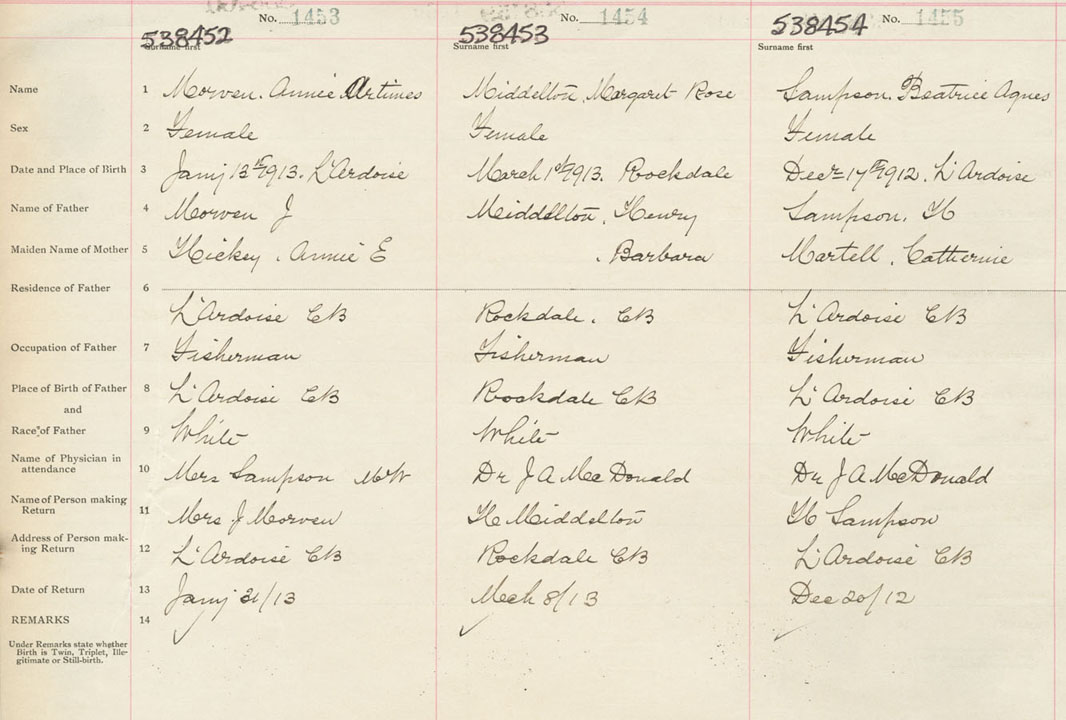 No. 1453 No. 1454 No. 1455
538452 538453 538454
Surname first Surname first Surname first
Name 1 Morven. Annie Artimes Middelton, Margaret Rose Sampson. Beatrice Agnes
Sex 2 Female Female Female
Date and Place of Birth 3 Jany 13th 1913. L'Ardoise March 1st 1913. Rockdale Decr 17th 1912. L'Ardoise
Name of Father 4 Morven J Middelton, Henry Sampson. H
Maiden Name of Mother 5 Hickey. Annie E . Barbara Martell, Catherine
Residence of Father 6
L'Ardoise CB Rockdale. CB L'Ardoise CB
Occupation of Father 7 Fisherman Fisherman Fisherman
Place of Birth of Father 8 L'Ardoise CB Rockdale CB L'Ardoise CB
and
Race of Father 9 White White White
Name of Physician in
attendance 10 Mrs Sampson MW Dr J A MacDonald Dr J A McDonald
Name of Person making
Return 11 Mrs J Morven H Middelton H Sampson
Address of Person mak-
ing Return 12 L'Ardoise CB Rockdale CB L'Ardoise CB
Date of Return 13 Jany 31/13 Mch 8/13 Dec 20/12
REMARKS 14
Under Remarks state whether
Birth is Twin, Triplet, Ille-
gitimate or Still-birth.